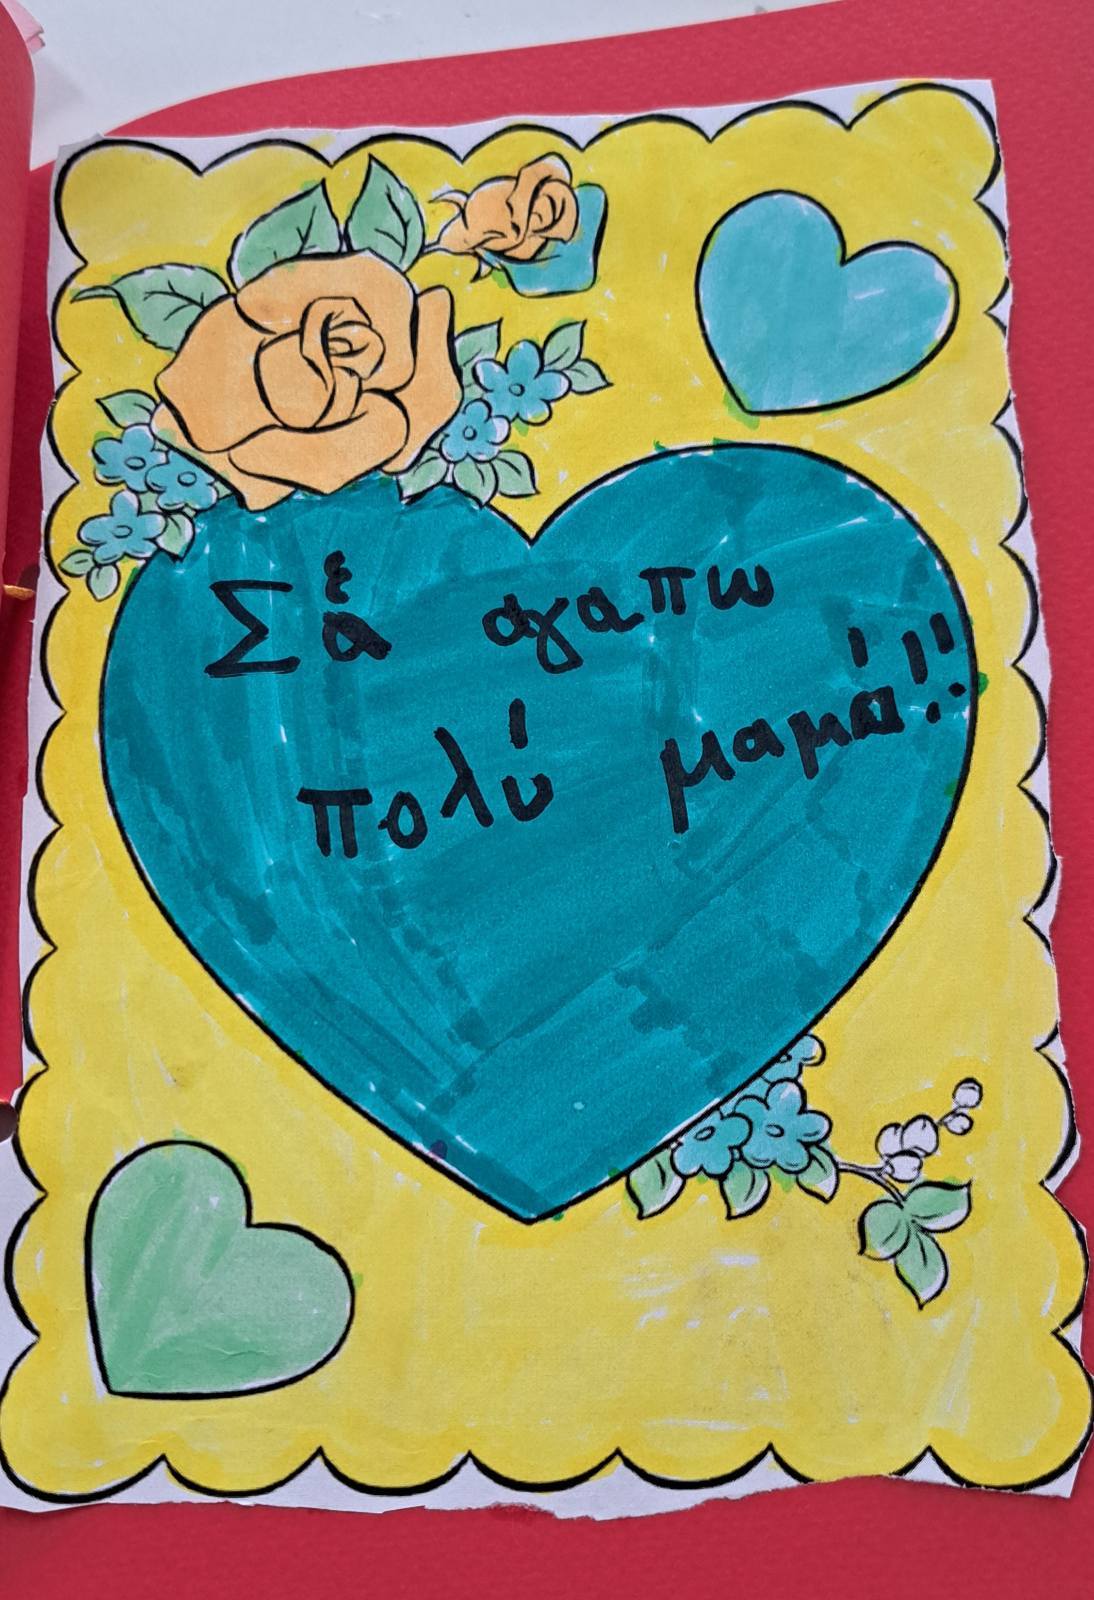 Σε αγαπω
πολύ μαμά!!